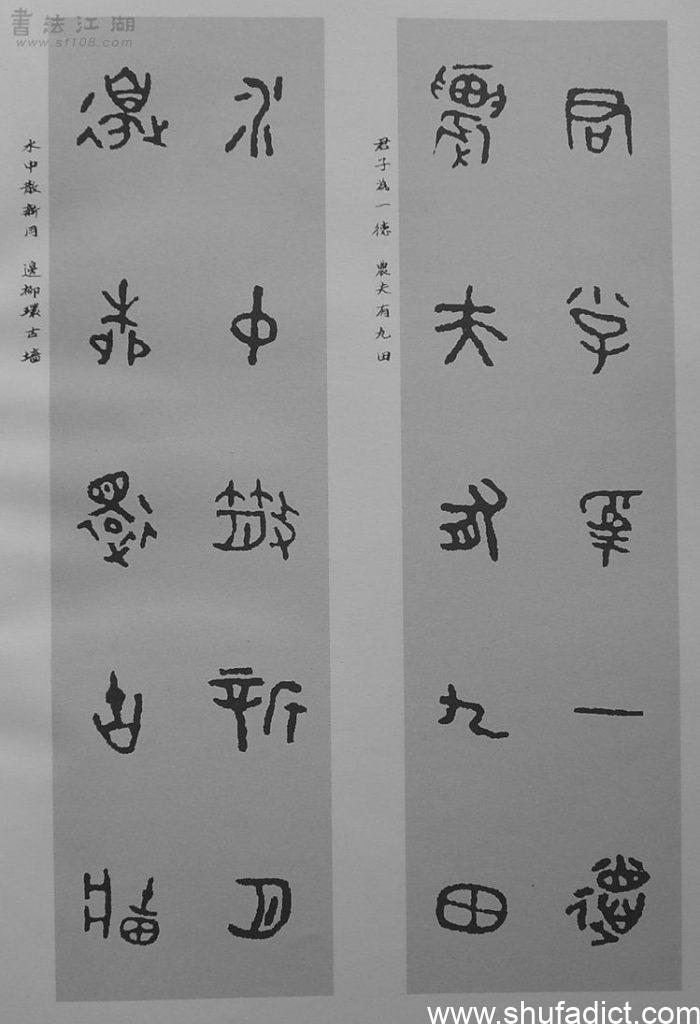 書法江湖
www.sf108.com
君子為一德
農夫有九田
君子為一德 農夫有九田
水中散新月
邊柳環古墙
水中散新月 邊柳環古墙
www.shufadict.com